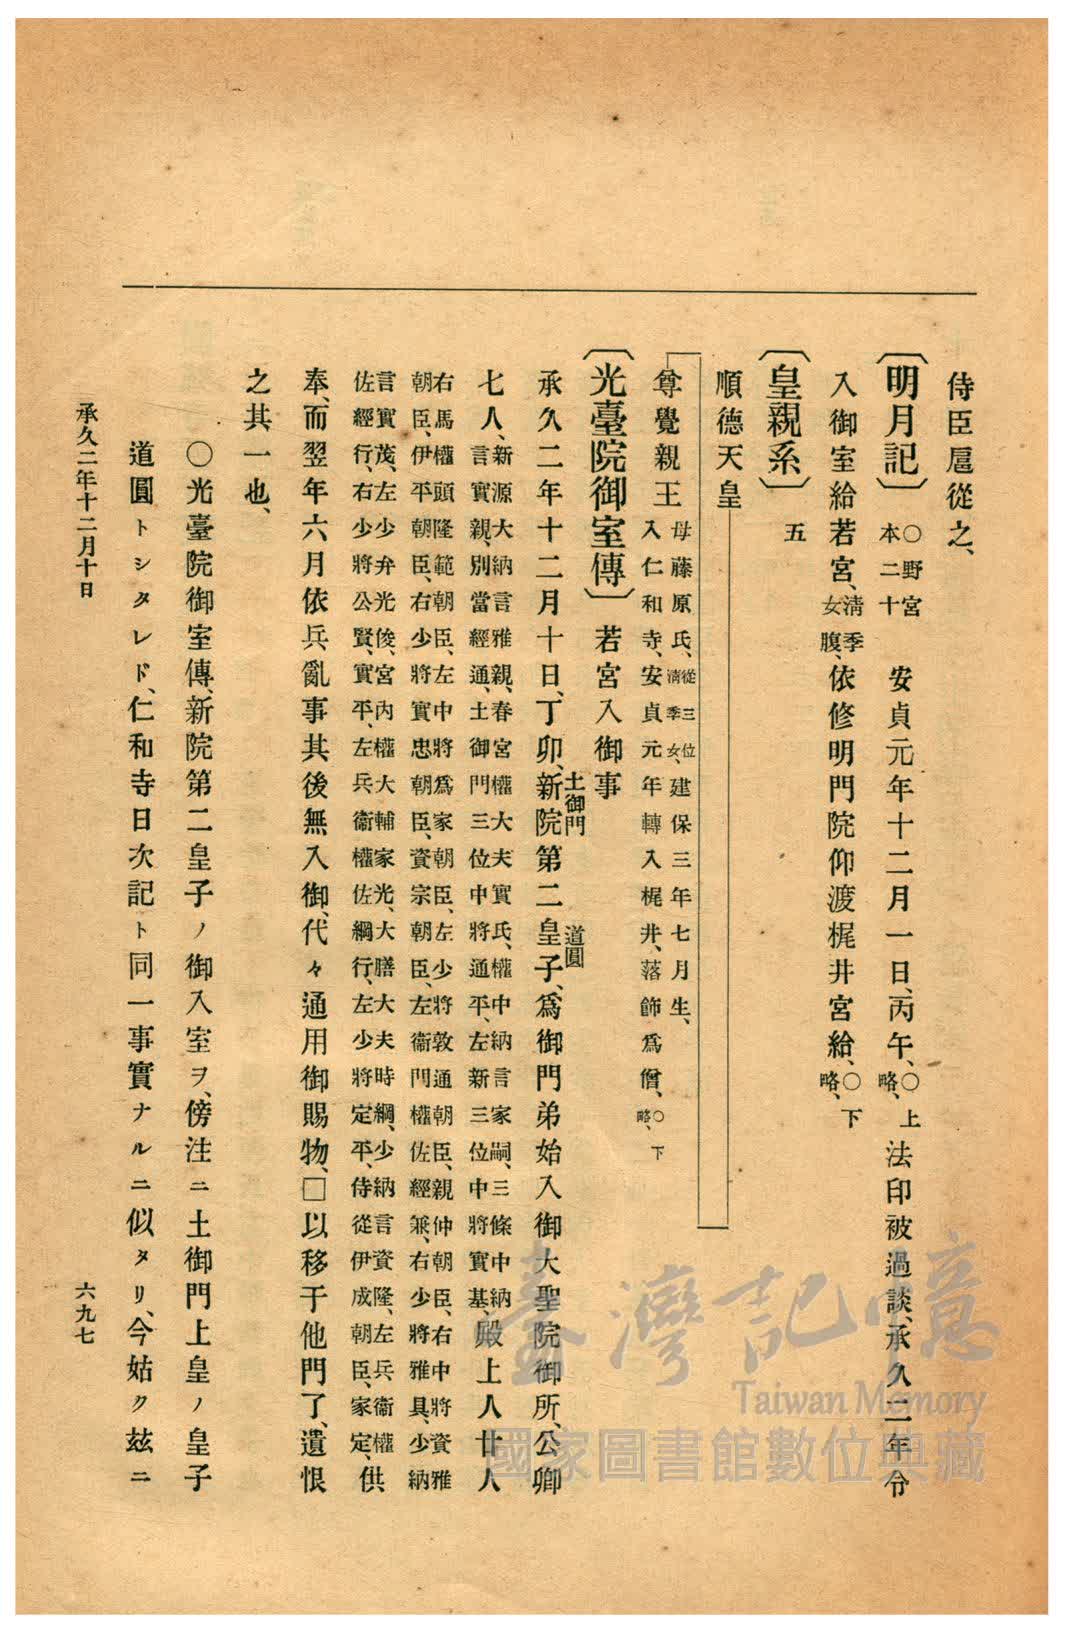 侍臣扈從之、
〔明月記〕○野宮本二十五 安貞元年十二月一日、丙午、○上略、法印被過談、承久二年令
入御室給若宮、清季女腹、依修明門院仰渡梶井宮給、○下略、
〔皇親系〕
順德天皇
尊覺親王 母藤原氏、從三位清季女、建保三年七月生、
入仁和寺、安貞元年轉入梶井、落飾爲僧、○下略、
〔光臺院御室傳〕 若宮入御事
承久二年十二月十日、丁卯、新院土御門第二皇子、道圓爲御門弟始入御大聖院御所、公卿
七人、新源大納言雅親、春宮權大夫實氏、權中納言家嗣、三條中納言實親、別當經通、土御門三位中將通平、左新三位中將實基、殿上人廿人
右馬權頭隆範朝臣、左中將爲家朝臣、左少將敦通朝臣、親仲朝臣、右中將資雅
朝臣、伊平朝臣、右少將實忠朝臣、資宗朝臣、左衞門權佐經兼、右少將雅具、少納
言實茂、左少弁光俊、宮內權大輔家光、大膳大夫時綱、少納言資隆、左兵衞權
佐經行、右少將公賢、實平、左兵衞權佐綱行、左少將定平、侍從伊成朝臣、家定、供
奉、而翌年六月依兵亂事其後無入御、代々通用御賜物、□以移于他門了、遺恨
之其一也、
○光臺院御室傳、新院第二皇子ノ御入室ヲ、傍注ニ土御門上皇ノ皇子
道圓トシタレド、仁和寺日次記ト同一事實ナルニ似タリ、今姑ク玆ニ
承久二年十二月十日
六九七
臺灣記憶
Taiwan Memory
國家圖書館數位典藏